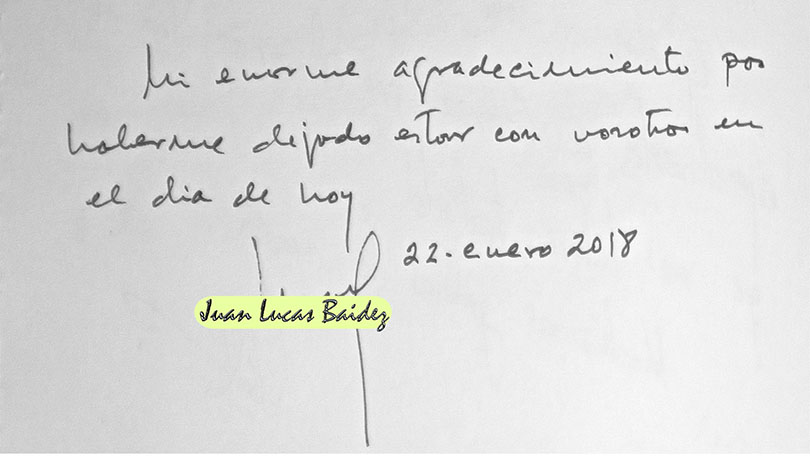 Mi enorme agradecimiento por
haberme dejado estar con vosotros en
el dia de hoy
22. enero 2018
Juan Lucas Baidez